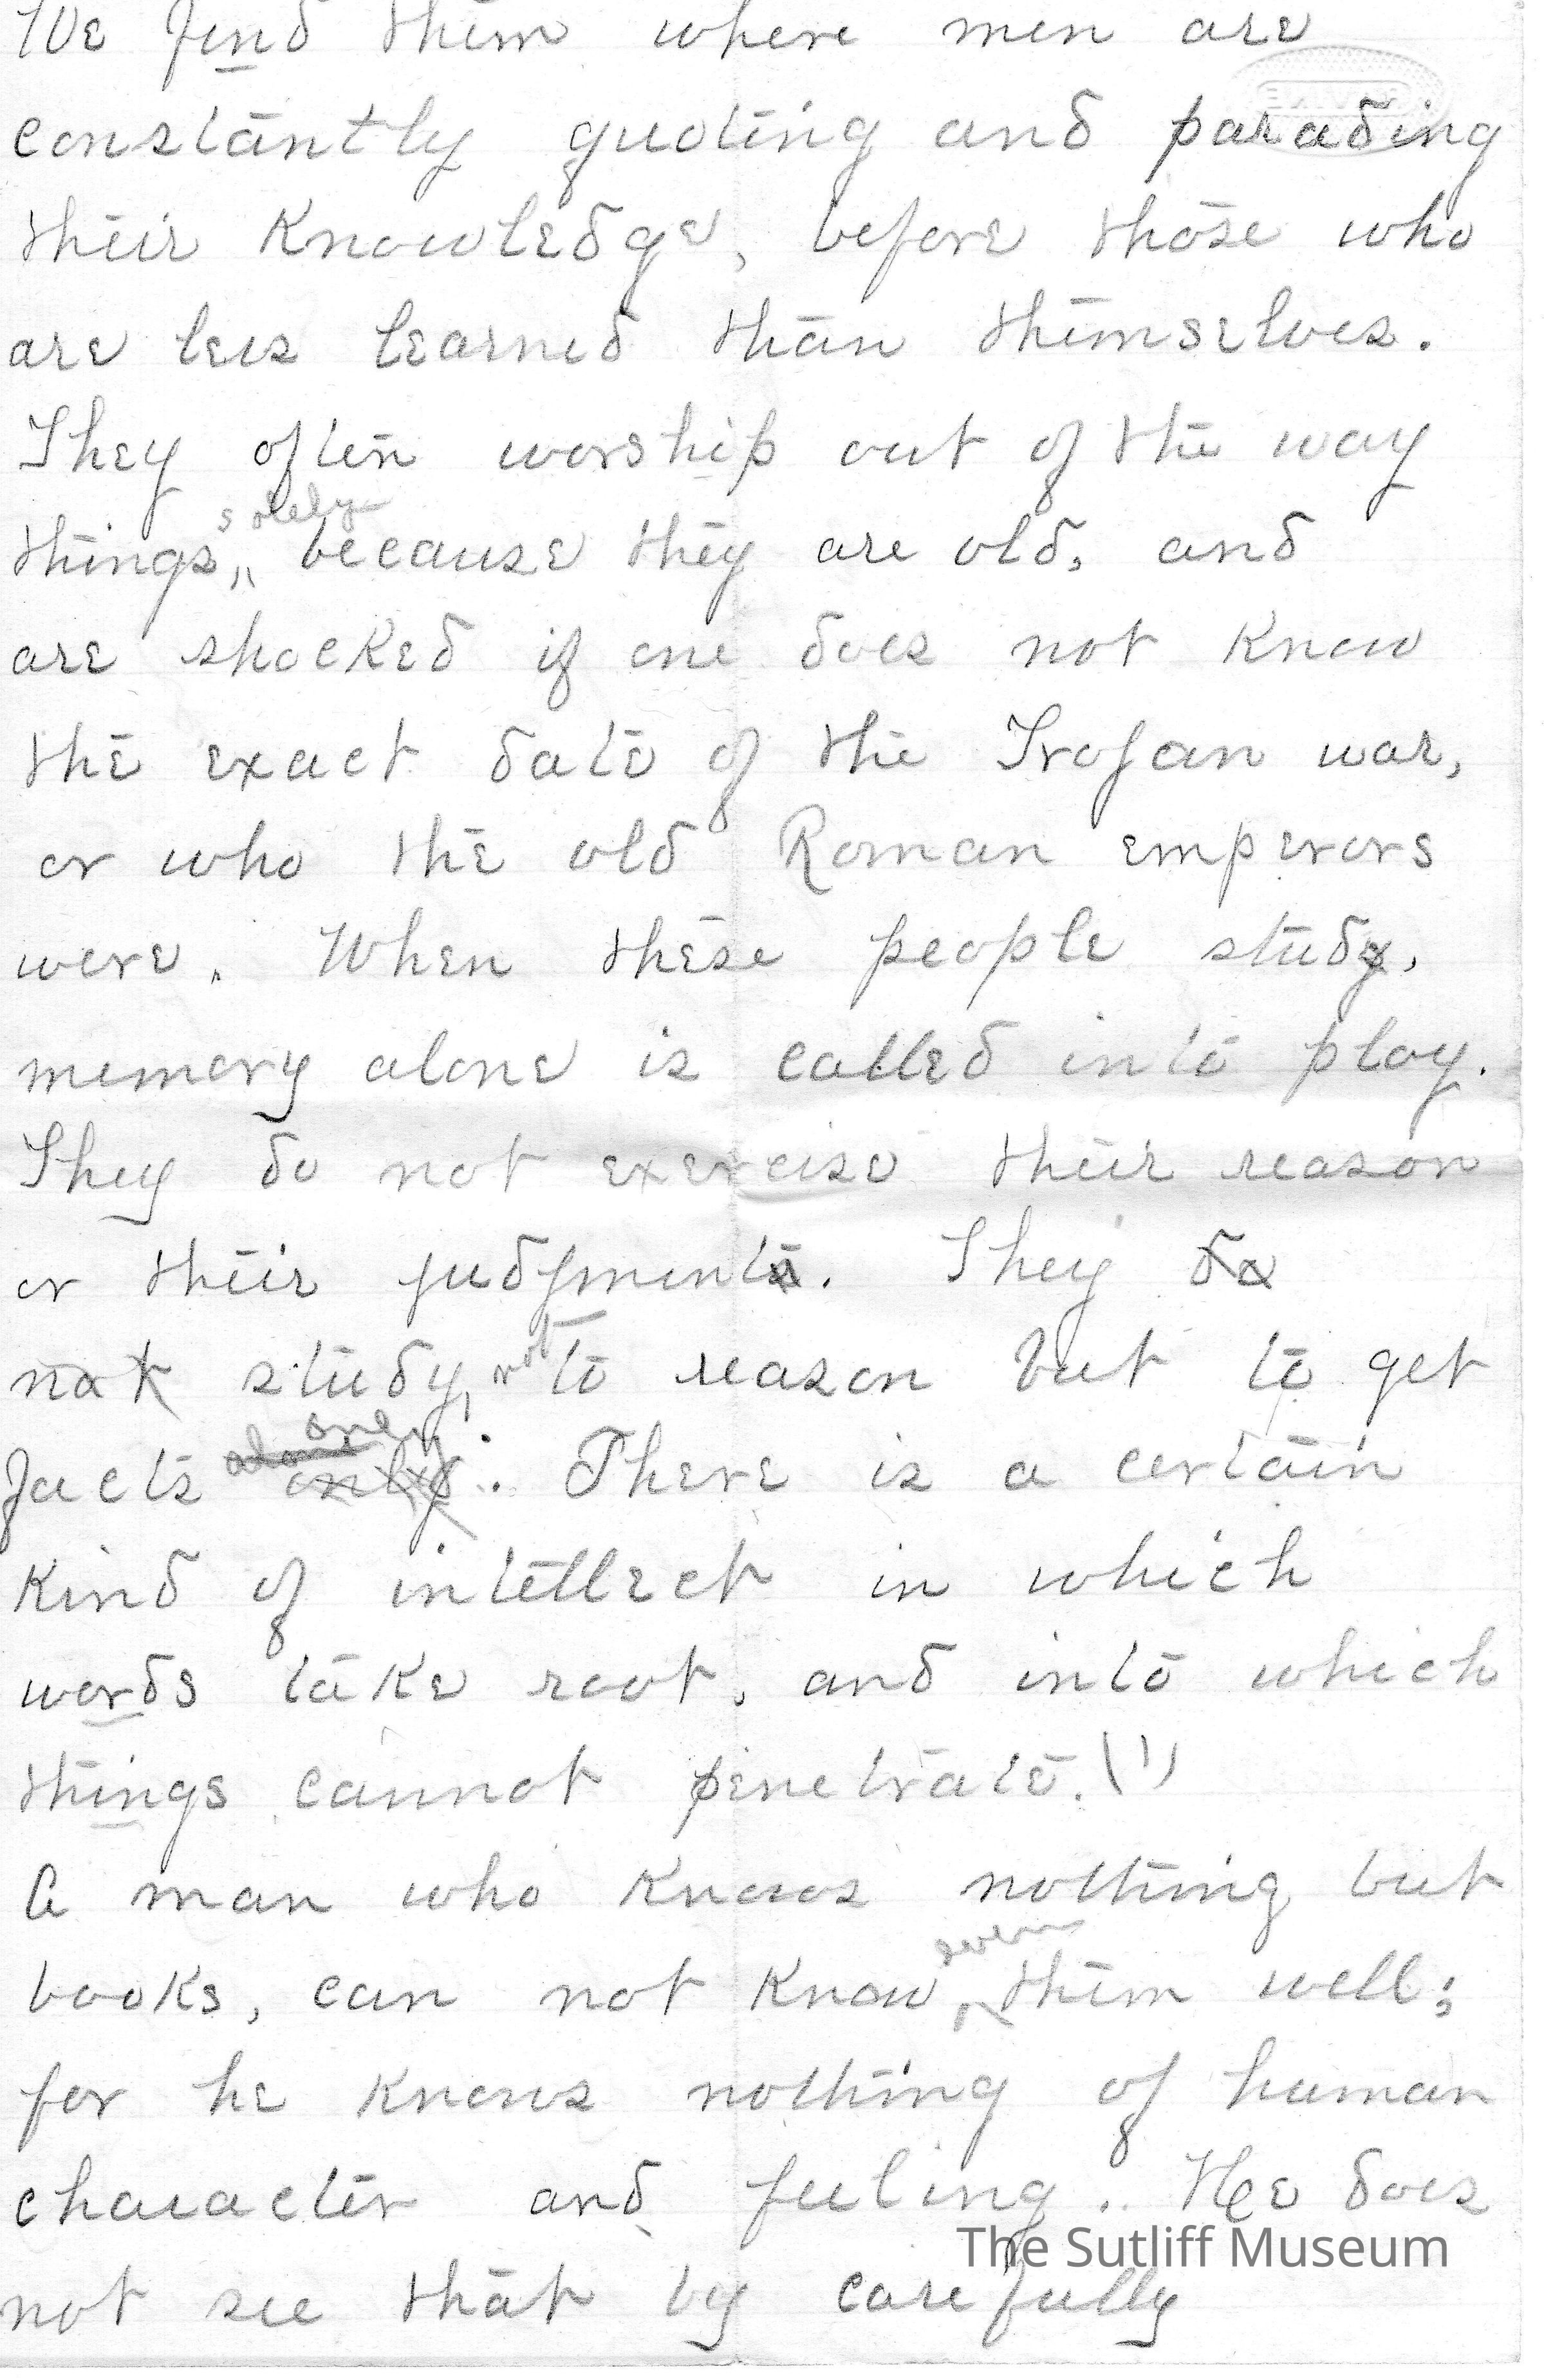 We find them where men are
constantly quoting and parading
their knowledge, before those who
are less learned than themselves.
They often worship out of the way
solely
things, because they are old, and
are shocked if one does not know
the exact date of the Trojan war,
or who the old Roman emperors
were. When these people study,
memory alone is called into play.
They do not exercise their reason
or their judgments. They do
not study, not to reason but to get
alone only
facts only. There is a certain
kind of intellect in which
words take root, and into which
things cannot penetrate.(1)
A man who knows nothing but
even
books, can not know them well;
for he knows nothing of human
character and feeling. He does
not see that by carefully
The Sutliff Museum